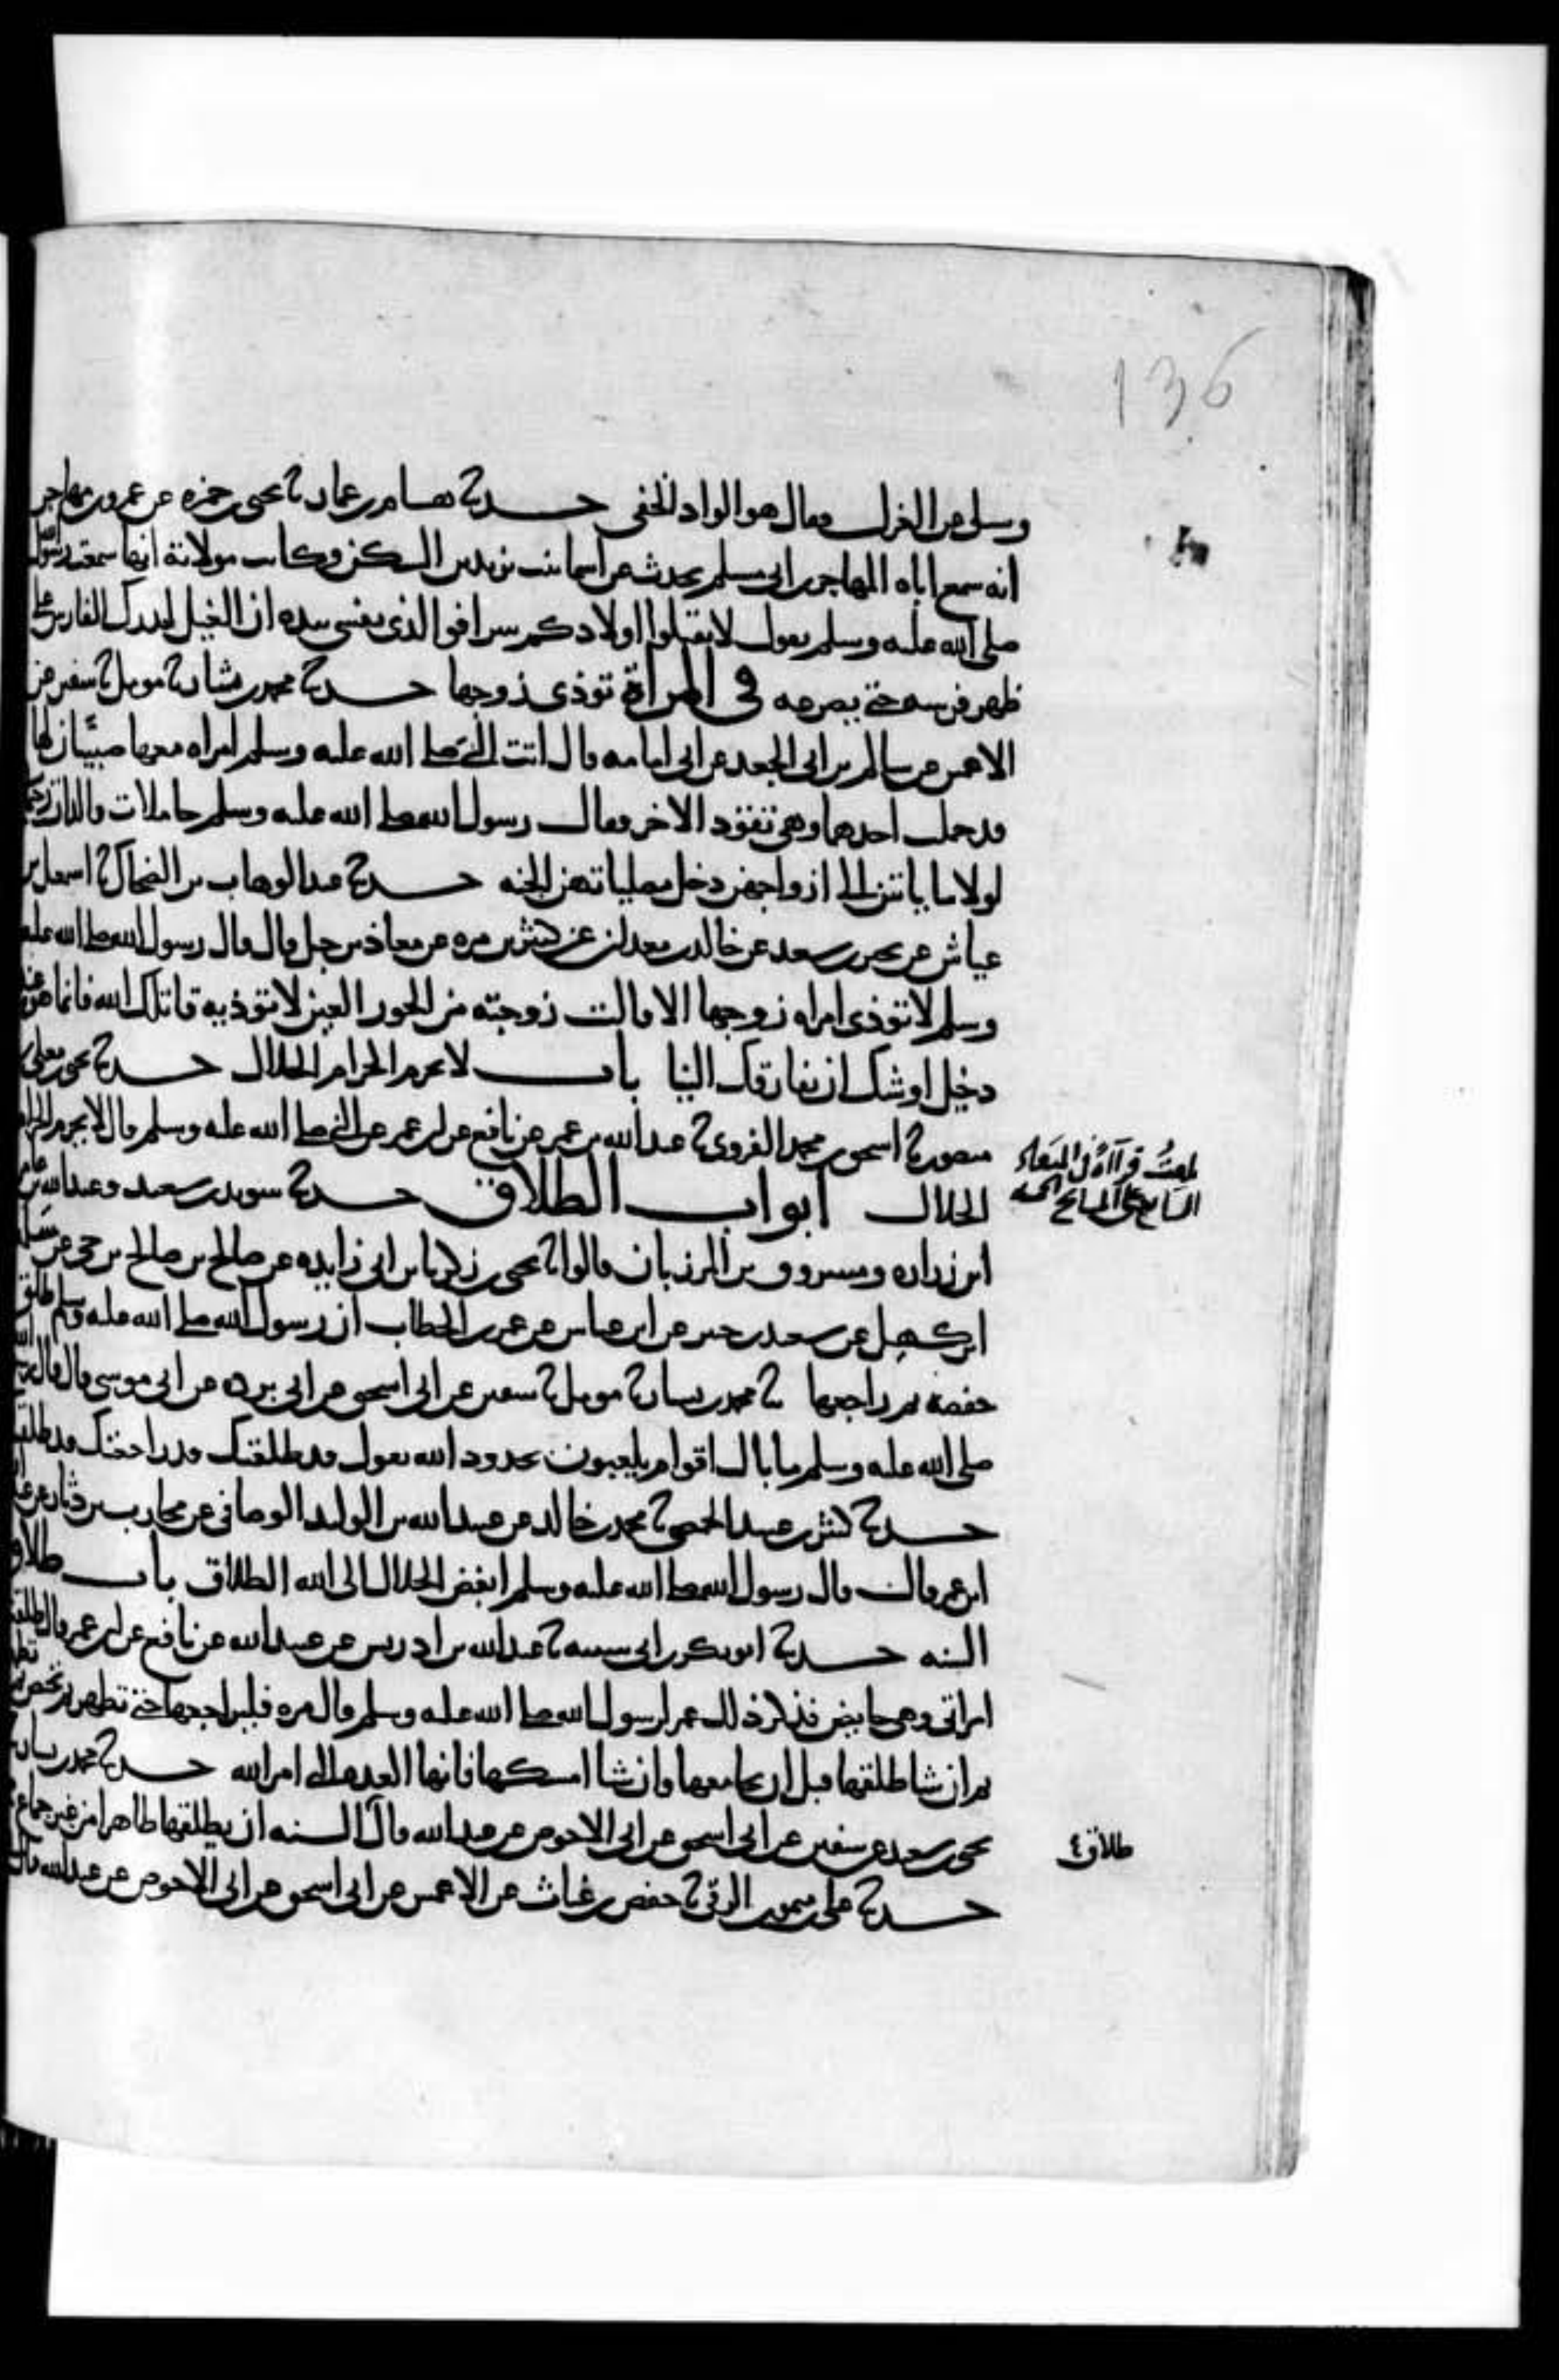 136
وسئل عن العزل فقال هو الواد الخفي حدثنا هشام بن عمار ثنا يحيى بن حمزه عن عمرو بن مهاجر
انه سمع اباه المهاجر بن ابي مسلم يحدث عن اسما بنت يزيد بن السكن وكانت مولاته انها سمعت رسول الله
صلى الله عليه وسلم يقول لا تقتلوا اولادكم سرا فوالذي نفسي بيده ان الغيل ليدرك الفارس على
ظهر فرسه حتى يصرعه في المراة توذي زوجها حدثنا محمد بن بشار ثنا مومل ثنا سفين عن
الاعمش عن سالم بن ابي الجعد عن ابي امامه قال اتت النبي صلى الله عليه وسلم امراه معها صبيان لها
قد حملت احدهما وهي تقود الاخر فقال رسول الله صلى الله عليه وسلم حاملات والدات رحيمات
لولا ما ياتين الى ازواجهن دخل مصلياتهن الجنه حدثنا عبد الوهاب بن الضحاك ثنا اسمعيل بن
عياش عن بحير بن سعد عن خالد بن معدان عن كثير بن مره عن معاذ بن جبل قال قال رسول الله صلى الله عليه
وسلم لا توذي امراه زوجها الا قالت زوجته من الحور العين لا توذيه قاتلك الله فانما هو عندك
دخيل اوشك ان يفارقك الينا باب لا يحرم الحرام الحلال حدثنا يحيى بن معلى بن
منصور ثنا اسحق بن محمد الفروي ثنا عبد الله بن عمر عن نافع عن ابن عمر عن النبي صلى الله عليه وسلم قال لا يحرم الحرام
الحلال ابواب الطلاق حدثنا سويد بن سعيد وعبد الله بن عامر
ابن زراره ومسروق بن المرزبان قالوا ثنا يحيى بن زكريا بن ابي زايده عن صالح بن صالح بن حي عن سلمة
ابن كهيل عن سعيد بن جبير عن ابن عباس عن عمر بن الخطاب ان رسول الله صلى الله عليه وسلم طلق
حفصه ثم راجعها ثنا محمد بن بشار ثنا مومل ثنا سفين عن ابي اسحق عن ابي برده عن ابي موسى قال قال رسول الله
صلى الله عليه وسلم ما بال اقوام يلعبون بحدود الله يقول قد طلقتك قد راجعتك قد طلقتك
حدثنا كثير بن عبيد الحمصي ثنا محمد بن خالد عن عبيد الله بن الوليد الوصافي عن محارب بن دثار عن عبد الله
ابن عمر قال قال رسول الله صلى الله عليه وسلم ابغض الحلال الى الله الطلاق باب طلاق
السنه حدثنا ابو بكر بن ابي شيبه ثنا عبد الله بن ادريس عن عبيد الله عن نافع عن ابن عمر قال طلقت
امراتي وهي حايض فذكر ذلك عمر لرسول الله صلى الله عليه وسلم قال مره فليراجعها حتى تطهر ثم تحيض ثم تطهر
ثم ان شا طلقها قبل ان يجامعها وان شا امسكها فانها العده التي امر الله حدثنا محمد بن بشار ثنا
يحيى بن سعيد عن سفين عن ابي اسحق عن ابي الاحوص عن عبد الله قال السنه ان يطلقها طاهرا من غير جماع
حدثنا علي بن ميمون الرقي ثنا حفص بن غياث عن الاعمش عن ابي اسحق عن ابي الاحوص عن عبد الله قال
بلغت قراءة في
السابع على
طلاق